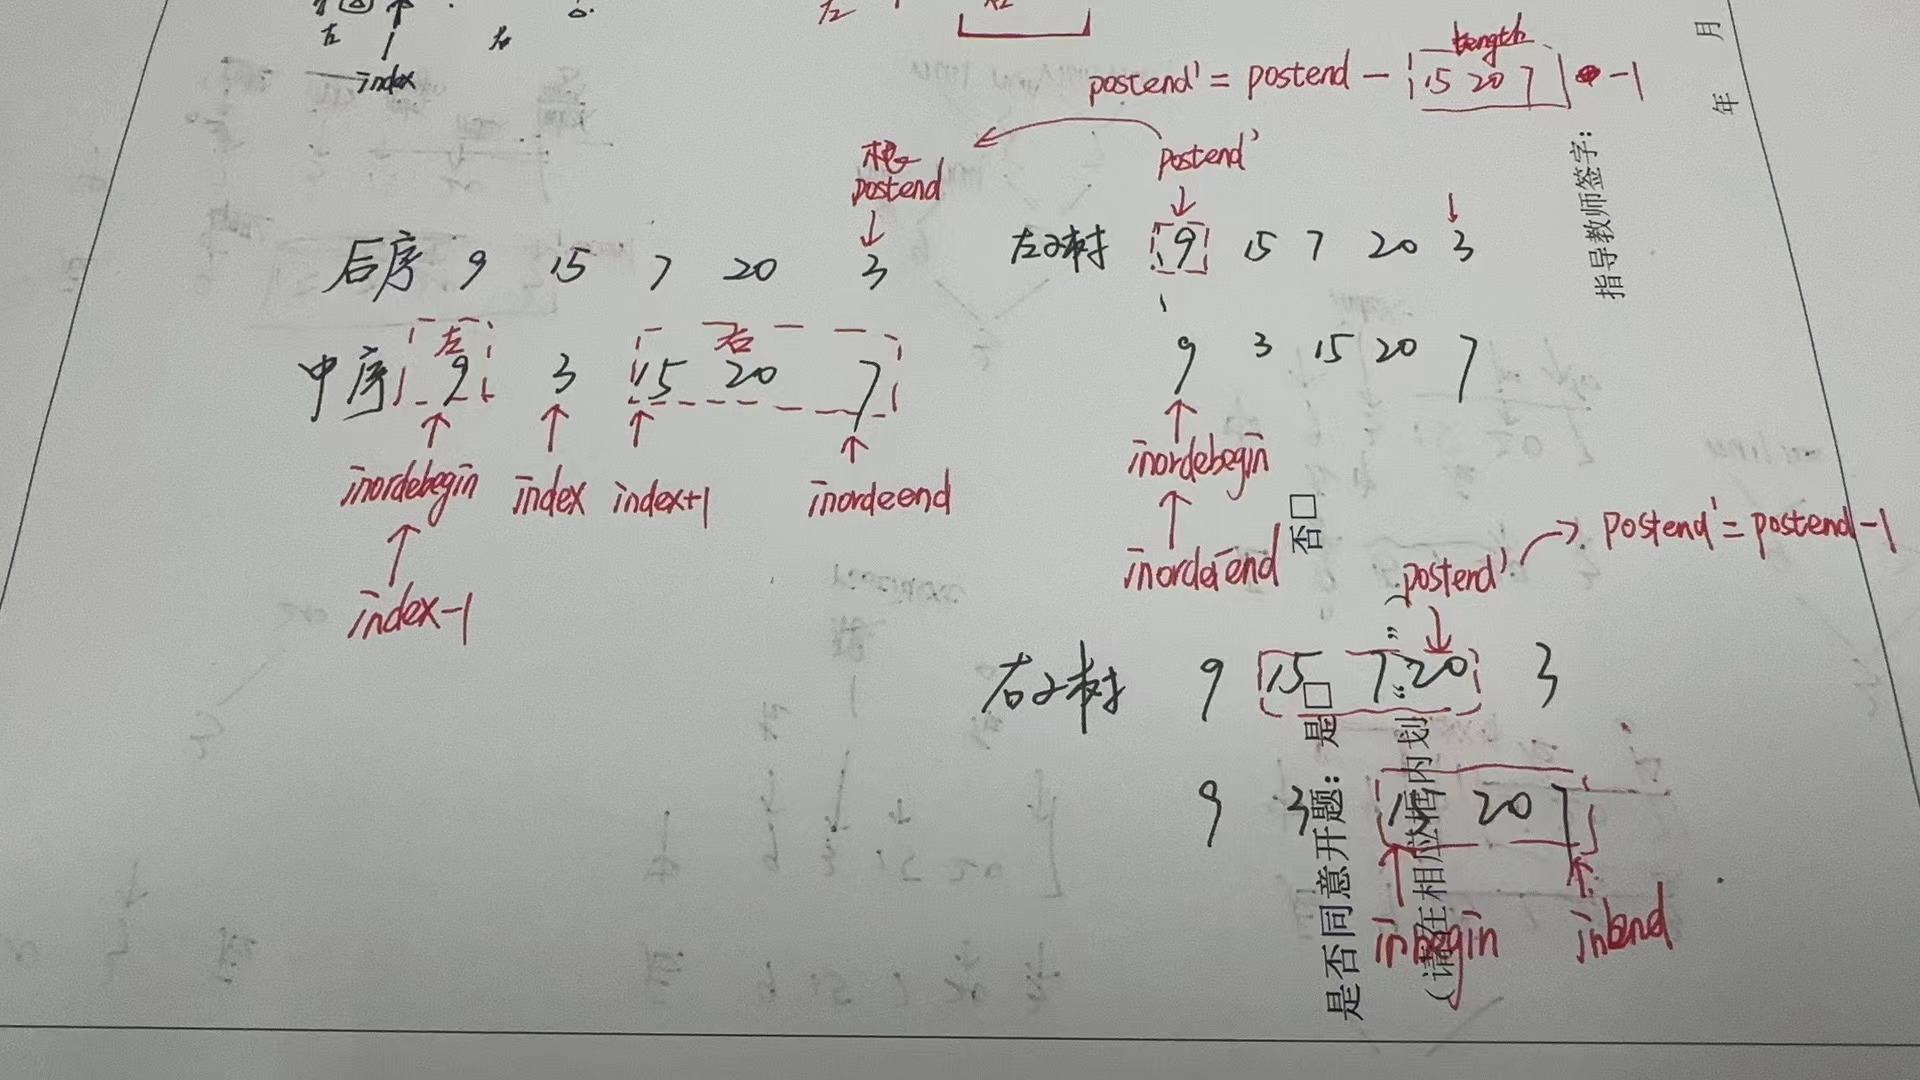 左 右
index
左
length
postend' = postend - 15 20 7 -1
根
postend
postend'
后序 9 15 7 20 3
左
右
中序 9 3 15 20 7
inordebegin index index+1 inordeend
index-1
左子树 9 15 7 20 3
9 3 15 20 7
inordebegin
inordeiend
postend' → postend' = postend-1
右子树 9 15 7 20 3
9 3 15 20 7
inbegin inbend
是否同意开题: 是□ 否□
(请在相应框内划“ ”
指导教师签字:
年 月